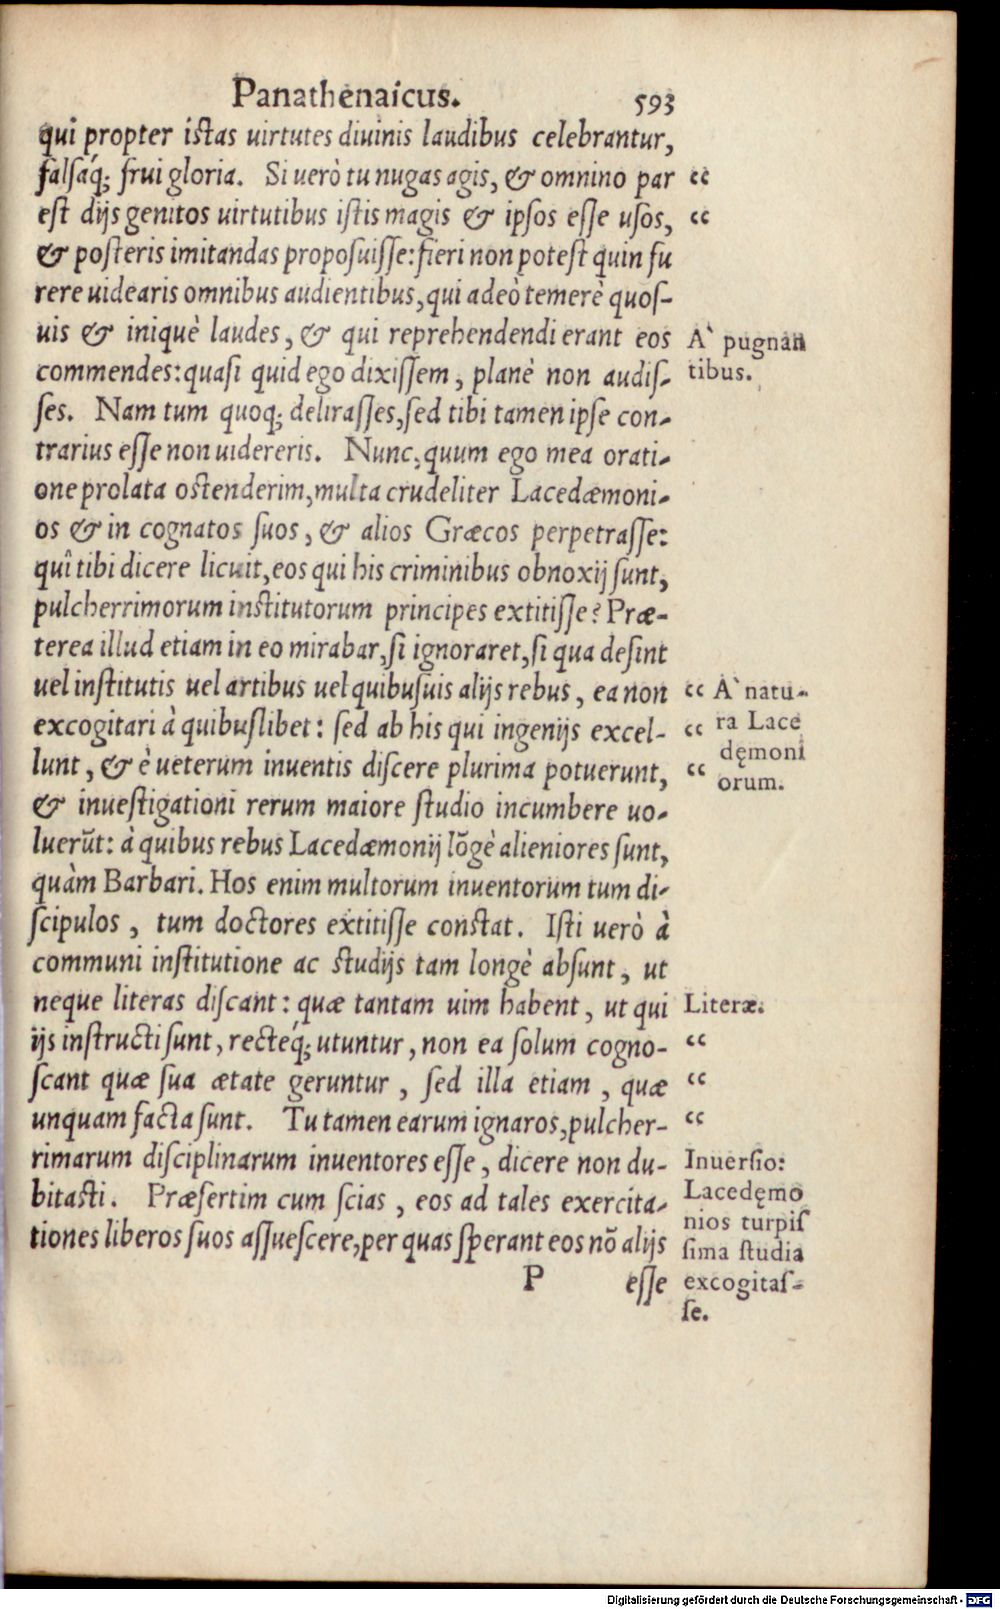 Panathenaicus. 593
qui propter istas uirtutes diuinis laudibus celebrantur,
falsaq́; frui gloria. Si uerò tu nugas agis, & omnino par “
est dijs genitos uirtutibus istis magis & ipsos esse usos, “
& posteris imitandas proposuisse: fieri non potest quin fu
rere uidearis omnibus audientibus, qui adeò temerè quos-
uis & iniquè laudes, & qui reprehendendi erant eos
commendes: quasi quid ego dixissem, planè non audis-
ses. Nam tum quoq; delirasses, sed tibi tamen ipse con-
trarius esse non uidereris. Nunc, quum ego mea orati-
one prolata ostenderim, multa crudeliter Lacedæmoni-
os & in cognatos suos, & alios Græcos perpetrasse:
quî tibi dicere licuit, eos qui his criminibus obnoxij sunt,
pulcherrimorum institutorum principes extitisse? Præ-
terea illud etiam in eo mirabar, si ignoraret, si qua desint
uel institutis uel artibus uel quibusuis alijs rebus, ea non “
excogitari à quibuslibet: sed ab his qui ingenijs excel- “
lunt, & è ueterum inuentis discere plurima potuerunt, “
& inuestigationi rerum maiore studio incumbere uo-
luerūt: à quibus rebus Lacedæmonij lōgè alieniores sunt,
quàm Barbari. Hos enim multorum inuentorum tum di-
scipulos, tum doctores extitisse constat. Isti uerò à
communi institutione ac studijs tam longè absunt, ut
neque literas discant: quæ tantam uim habent, ut qui
ijs instructi sunt, recteq́; utuntur, non ea solum cogno- “
scant quæ sua ætate geruntur, sed illa etiam, quæ “
unquam facta sunt. Tu tamen earum ignaros, pulcher- “
rimarum disciplinarum inuentores esse, dicere non du-
bitasti. Præsertim cum scias, eos ad tales exercita-
tiones liberos suos assuescere, per quas sperant eos nō alijs
P esse
A` pugnan
tibus.
A` natu-
ra Lace
dęmoni
orum.
Literæ.
Inuersio:
Lacedęmo
nios turpis
sima studia
excogitas-
se.
Digitalisierung gefördert durch die Deutsche Forschungsgemeinschaft - DFG